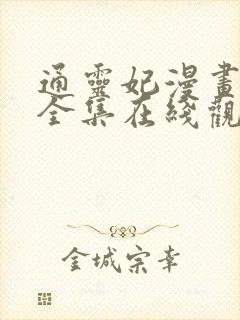 通靈妃漫畫
全集在綫觀
金城宗幸